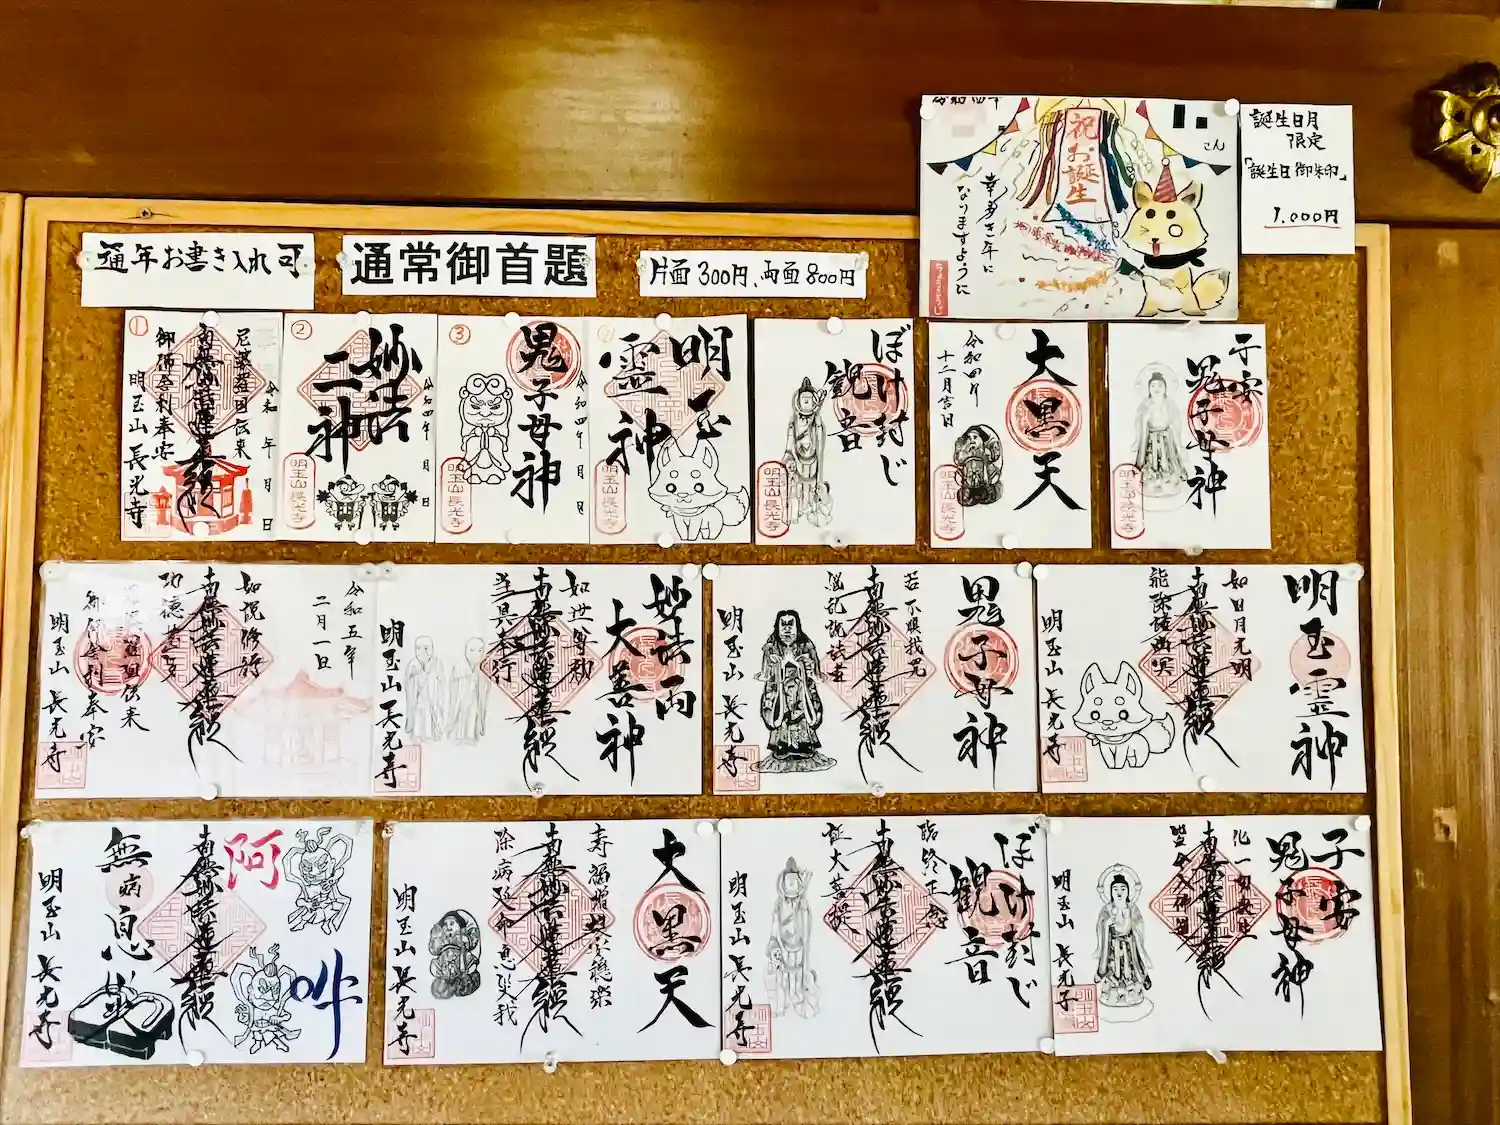 通年お書き入れ可
通常御首題
片面300円、両面800円
祝お誕生
さん
幸多き年に
なりますように
誕生日月
限定
「誕生日御朱印」
1,000円
①
令和 年 月 日
尼波羅国伝来
南無妙法蓮華経
御佛舎利奉安
明玉山 長光寺
②
令和四年 月 日
妙法
二神
明玉山長光寺
③
令和四年 月 日
鬼子母神
明玉山長光寺
④
明玉
霊神
明玉山長光寺
ぼけ封じ
観音
明玉山長光寺
大黒天
令和四年
十二月吉日
明玉山長光寺
子安
鬼子母神
明玉山長光寺
令和五年
二月一日
如説修行
南無妙法蓮華経
御佛舎利奉安
明玉山 長光寺
妙法両
大善神
如世尊勅
南無妙法蓮華経
当具奉行
明玉山 長光寺
鬼子母神
若不順我呪
南無妙法蓮華経
悩乱説法者
明玉山 長光寺
明玉霊神
如日月光明
南無妙法蓮華経
能除諸幽冥
明玉山 長光寺
阿
吽
南無妙法蓮華経
無病息災
明玉山 長光寺
大黒天
南無妙法蓮華経
明玉山 長光寺
ぼけ封じ
観音
臨終正念
南無妙法蓮華経
証大菩提
明玉山 長光寺
子安
鬼子母神
化一切衆生
南無妙法蓮華経
皆令入佛道
明玉山 長光寺